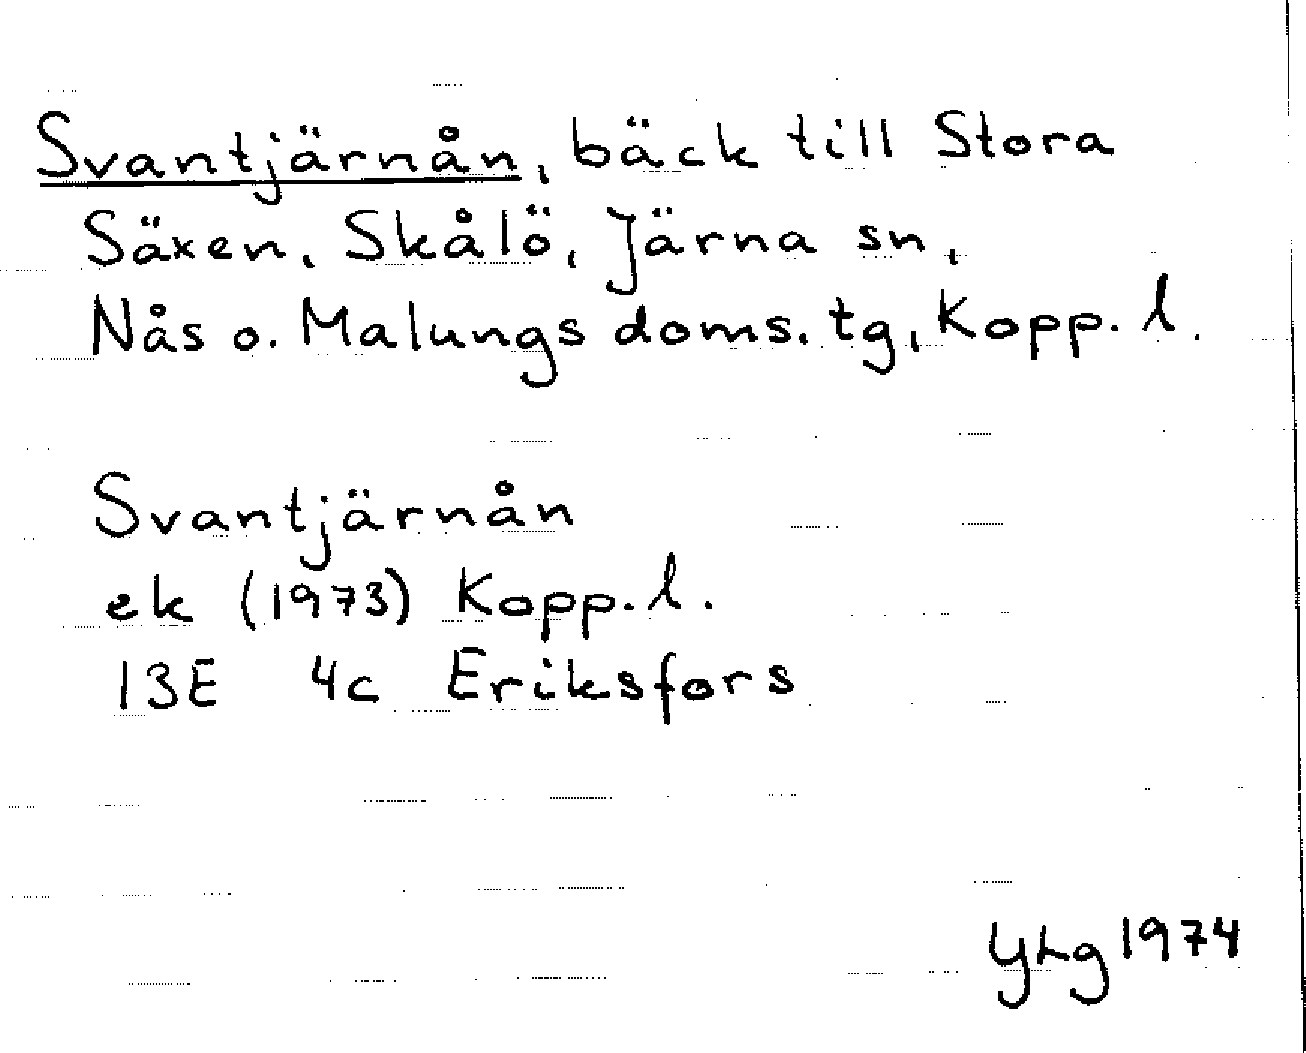 Svantjärnån, bäck till Stora
Säxen, Skålö, Järna sn,
Nås o. Malungs doms. tg, Kopp. l.
Svantjärnån
ek (1973) Kopp. l.
13E 4c Eriksfors
YLg 1974